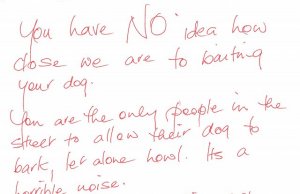 You have NO idea how
close we are to baiting
your dog.
You are the only people in the
street to allow their dog to
bark, let alone howl. Its a
horrible noise.